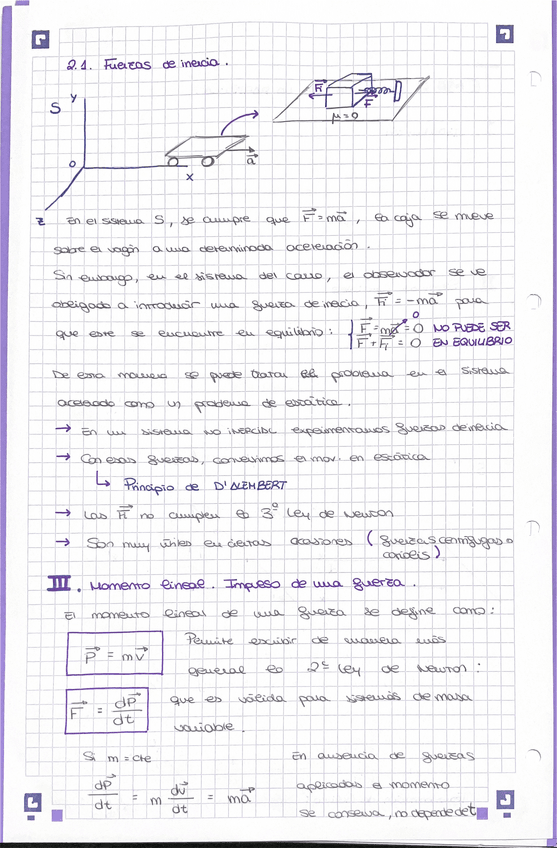 2.1. Fuerzas de inercia.
S
y
0
x
z
a⃗
F⃗i
F⃗
μ=0
En el sistema S, se cumple que F⃗=ma⃗, la caja se mueve
sobre el vagón a una determinada aceleración.
Sin embargo, en el sistema del carro, el observador se ve
obligado a introducir una fuerza de inercia, F⃗i = -ma⃗ para
que este se encuentre en equilibrio: { F⃗ = ma⃗ = 0 NO PUEDE SER
F⃗ + F⃗i = 0 EN EQUILIBRIO
0
De esta manera se puede tratar el problema en el sistema
acelerado como un problema de estática.
→ En un sistema NO INERCIAL experimentamos fuerzas de inercia
→ Con esas fuerzas, convertimos el mov. en estática
↳ Principio de D'ALEMBERT
→ Las F⃗i no cumplen la 3ª Ley de Newton
→ Son muy útiles en ciertas ocasiones (fuerzas centrífugas o
coriolis)
III. Momento lineal. Impulso de una fuerza.
El momento lineal de una fuerza se define como:
P⃗ = mv⃗
Permite escribir de manera más
general la 2ª Ley de Newton:
F⃗ = dP⃗/dt
que es válida para sistemas de masa
variable.
Si m = cte
dP⃗/dt = m dv⃗/dt = ma⃗
En ausencia de fuerzas
aplicadas el momento
se conserva, no depende de t